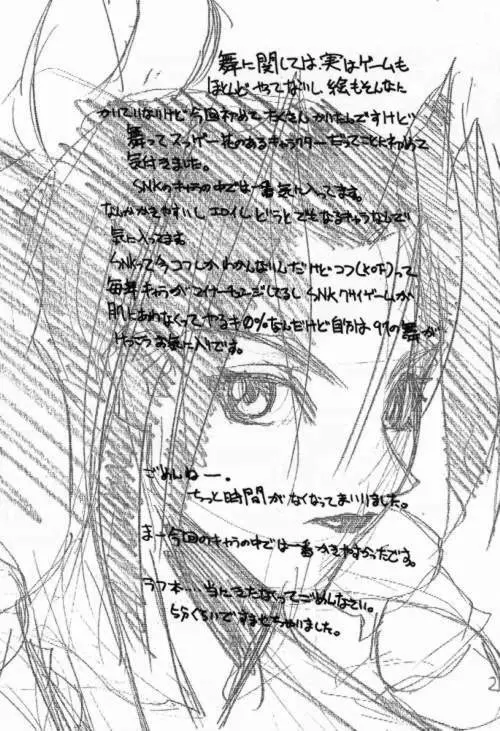 舞に関しては、実はゲームも
ほとんどやってないし、絵もそんなに
かいていないけど今回初めてたくさんかいたんですけど
舞ってスッゲー花のあるキャラクターだってことに初めて
気付きました。
SNKのキャラの中では一番気に入ってます。
なんかかきやすいし、エロイし、どうとでもなるキャラなんで
気に入ってます
SNKって今コフしかわかんないんだけど・コフ(KOF)って
毎年キャラがマイナーチェンジしてるし SNKのゲームが
肌にあわなくってやるキ0%なんだけど自分は97の舞が
けっこうお気に入りです。
ごめんねー.
ちっと時間がなくなってまいりました。
まー今回のキャラの中では一番かきやすかったです。
ラフ本....当にきたなくってごめんなさい。
5分くらいですませちゃいました。